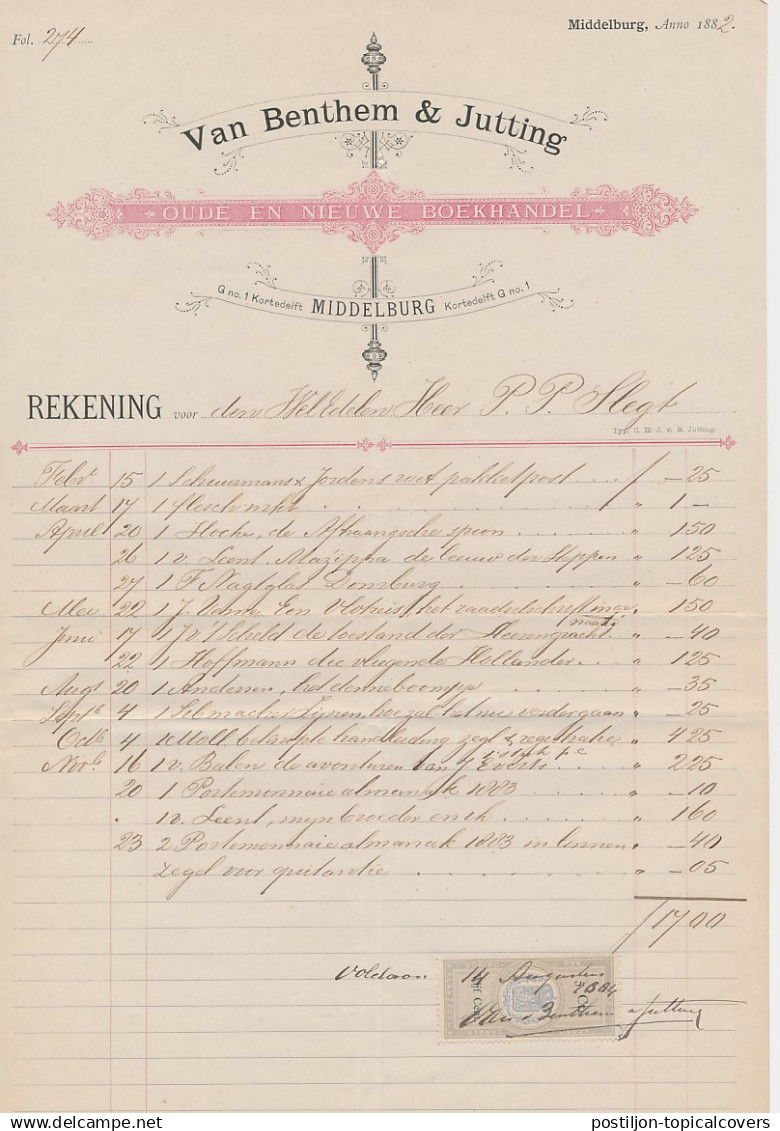 Fol. 274
Middelburg, Anno 1882.
Van Benthem & Jutting
OUDE EN NIEUWE BOEKHANDEL
G no. 1 Kortedelft MIDDELBURG Kortedelft G no. 1
REKENING voor den WelEdelen Heer P. P. Slegt
Typ. C. H. J. v. B. Jutting.
Febr. 15 1 Schuurmans & Jordens wet pakketpost f - 25
Maart 17 1 flesch inkt " 1 -
April 20 1 Hocker, de Afrikaansche spion " 1 50
26 1 v. Leent, Mazeppa de leeuw der Steppen " 1 25
27 1 F. Nagtglas Domburg " - 60
Mei 22 1 J. Een Vlotreis, het raadselschrift " 1 50
Juni 17 1 J. v. 't Scheld de toestand der Heerengracht " - 40
22 1 Hoffmann die vliegende Hollander " 1 25
Augs 20 1 Andersen, het denneboompje " - 35
Sept. 4 1 hoe zal het nu verder gaan " - 25
Octb. 4 1 Moll, beknopte handleiding zegl & registratie " 4 25
Novb. 16 1 v. Balen de avonturen van J. Everts " 2 25
20 1 Portemonnaie almanak 1883 " - 10
1 v. Leent, mijn broeder en ik " 1 60
23 2 Portemonnaie almanak 1883 in linnen " - 40
zegel voor quitantie " - 05
f 17 00
Voldaan
14 Augustus
1884
Van Benthem & Jutting
postiljon-topicalcovers